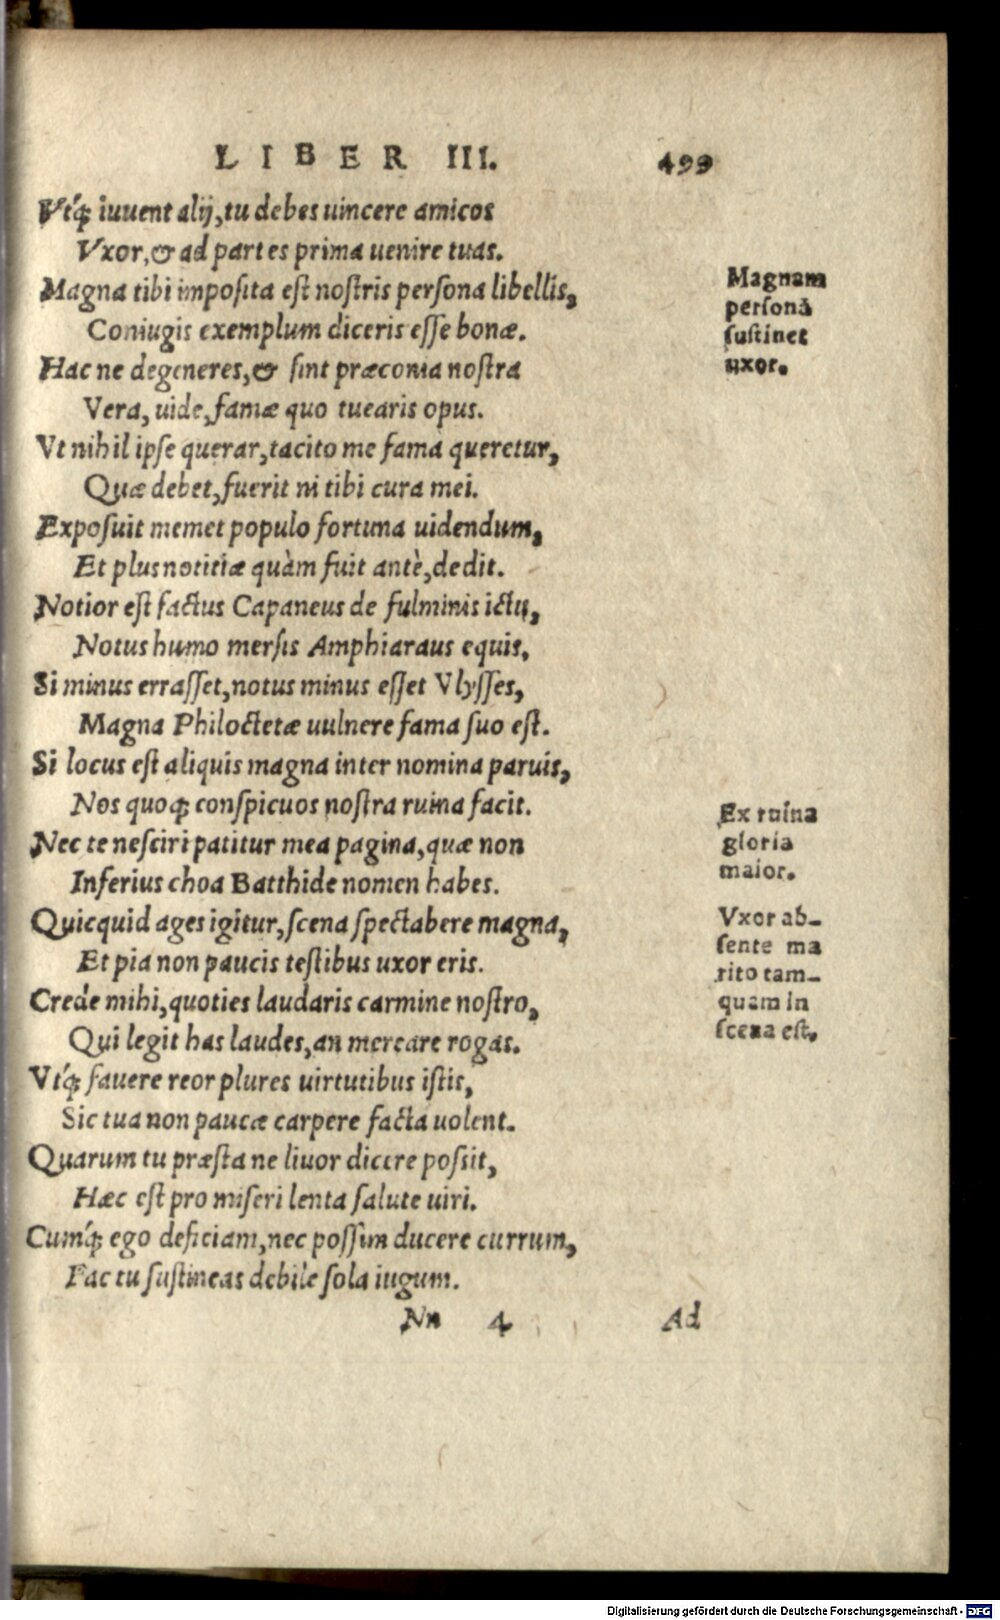 LIBER III. 499
Vtq́; iuuent alij, tu debes uincere amicos
Vxor, & ad partes prima uenire tuas.
Magna tibi imposita est nostris persona libellis,
Coniugis exemplum diceris esse bonæ.
Hac ne degeneres, & sint præconia nostra
Vera, uide, famæ quo tuearis opus.
Vt nihil ipse querar, tacito me fama queretur,
Quæ debet, fuerit ni tibi cura mei.
Exposuit memet populo fortuna uidendum,
Et plus notitiæ quàm fuit antè, dedit.
Notior est factus Capaneus de fulminis ictu,
Notus humo mersis Amphiaraus equis.
Si minus errasset, notus minus esset Vlysses,
Magna Philoctetæ uulnere fama suo est.
Si locus est aliquis magna inter nomina paruis,
Nos quoq; conspicuos nostra ruina facit.
Nec te nesciri patitur mea pagina, quæ non
Inferius choa Batthide nomen habes.
Quicquid ages igitur, scena spectabere magna,
Et pia non paucis testibus uxor eris.
Crede mihi, quoties laudaris carmine nostro,
Qui legit has laudes, an mereare rogas.
Vtq́; fauere reor plures uirtutibus istis,
Sic tua non paucæ carpere facta uolent.
Quarum tu præsta ne liuor dicere possit,
Hæc est pro miseri lenta salute uiri.
Cumq́; ego deficiam, nec possim ducere currum,
Fac tu sustineas debile sola iugum.
Nn 4 Ad
Magnam
personā
sustinet
uxor.
Ex ruina
gloria
maior.
Vxor ab-
sente ma
rito tam-
quam in
scena est.
Digitalisierung gefördert durch die Deutsche Forschungsgemeinschaft - DFG